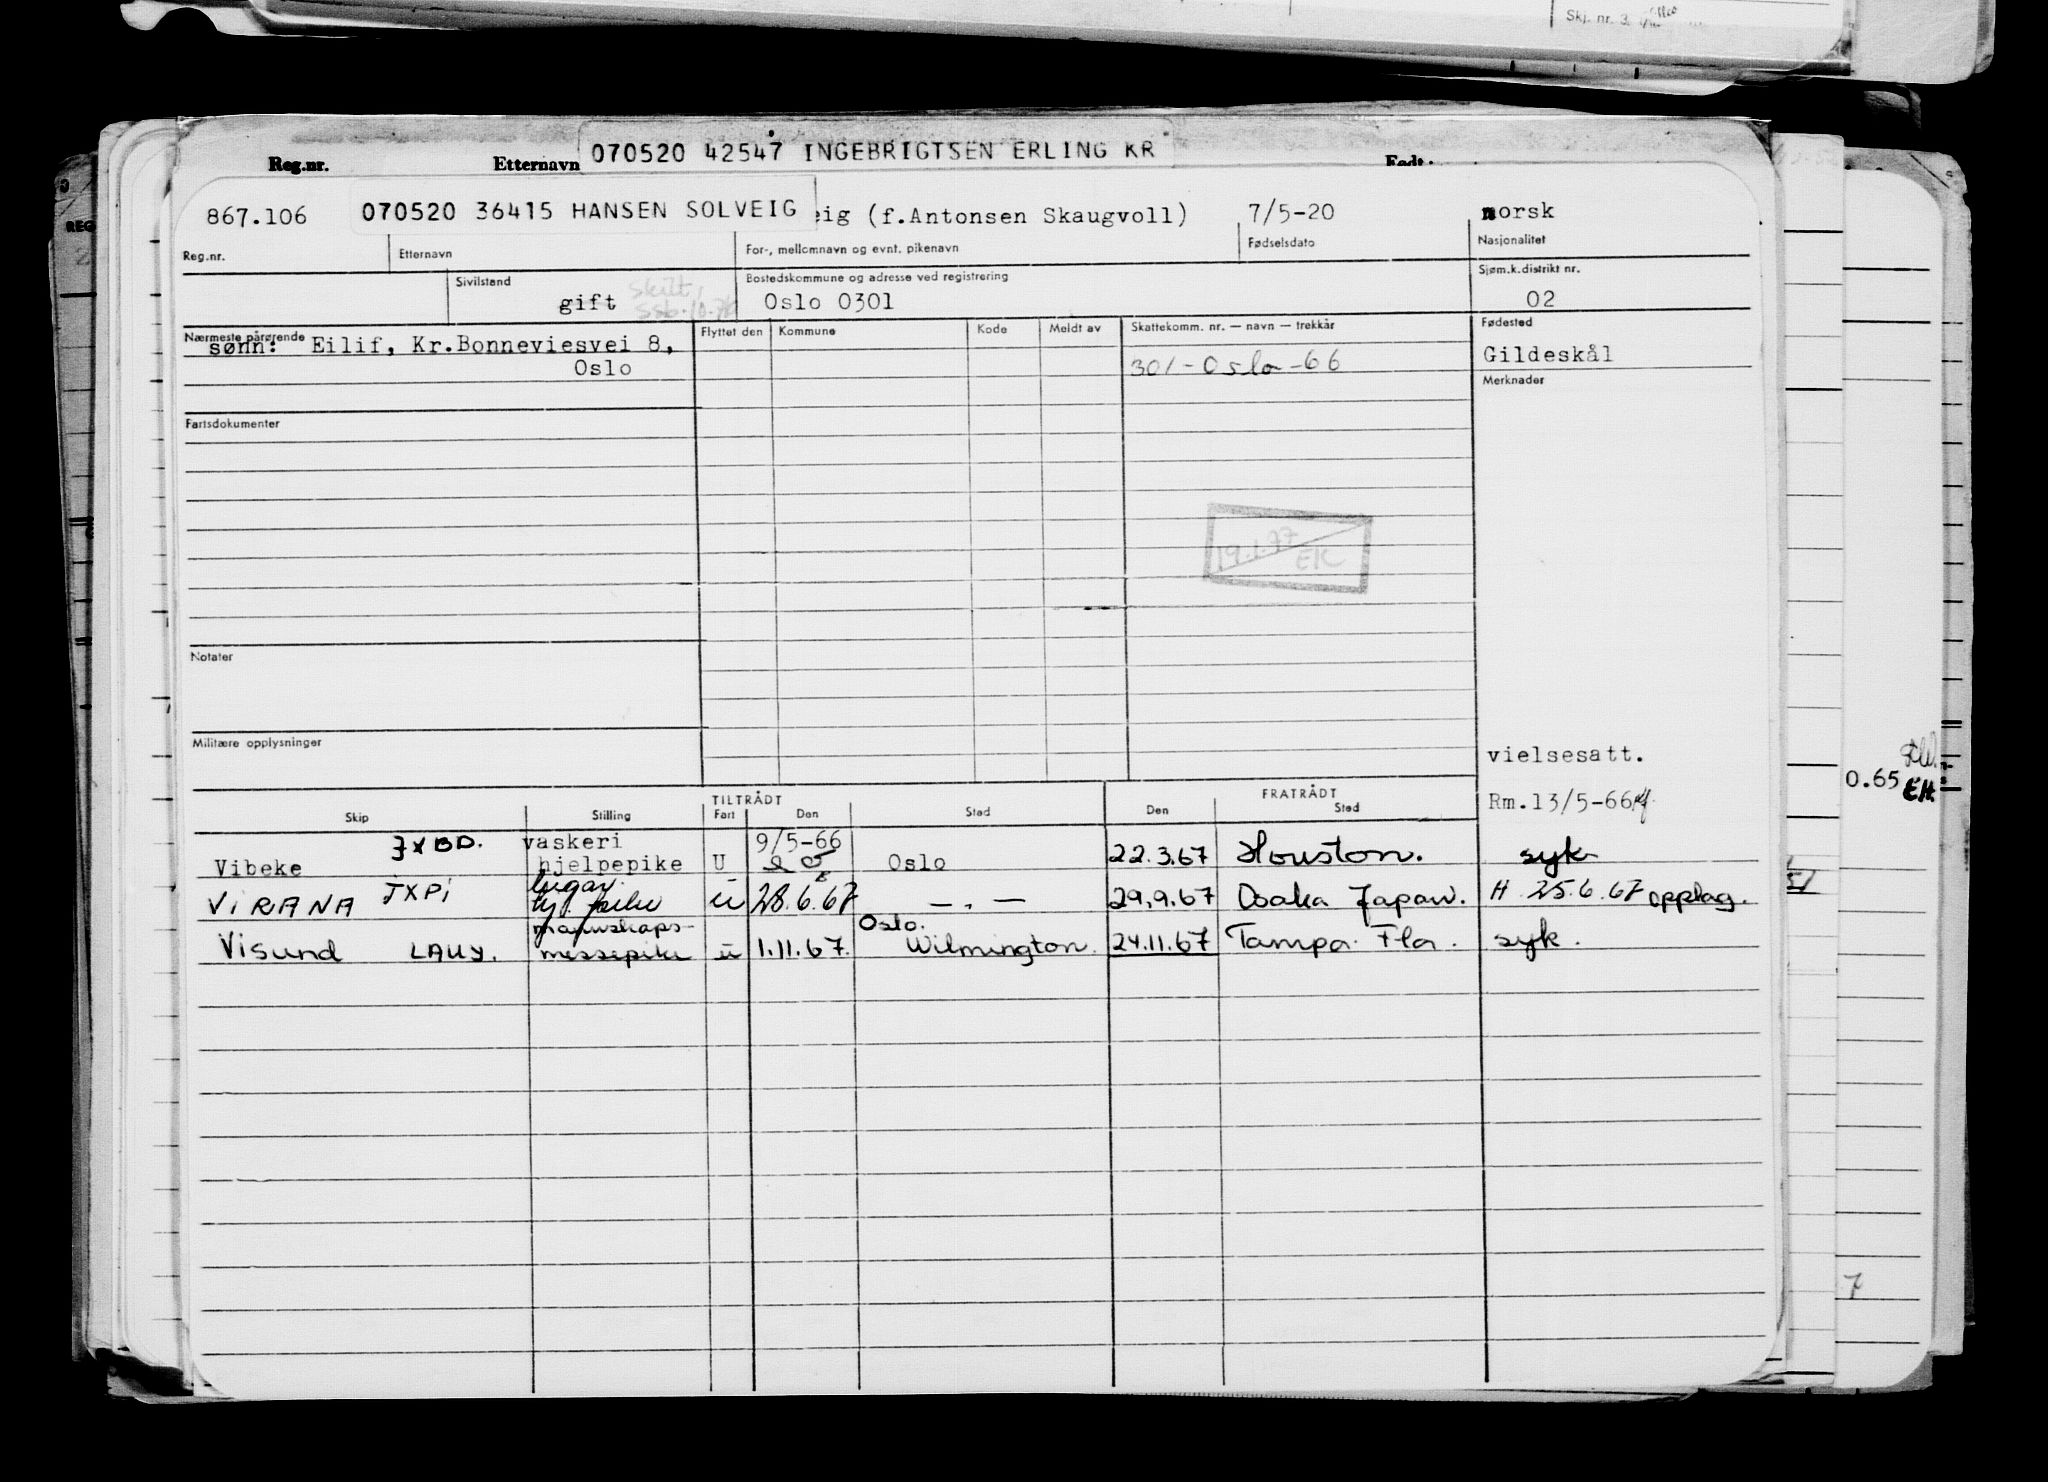 Skj. nr. 3.
Reg.nr. Etternavn 070520 42547 INGEBRIGTSEN ERLING KR Født:
867.106 070520 36415 HANSEN SOLVEIG eig (f.Antonsen Skaugvoll) 7/5-20 norsk
Reg.nr. Etternavn For-, mellomnavn og evnt. pikenavn Fødselsdato Nasjonalitet
Sivilstand Bostedskommune og adresse ved registrering Sjøm.k.distrikt nr.
gift skilt, ssb. Oslo 0301 02
Nærmeste pårørende Flyttet den Kommune Kode Meldt av Skattekomm. nr. — navn — trekkår Fødested
sønn: Eilif, Kr.Bonneviesvei 8, Gildeskål
Oslo 301-Oslo-66
Merknader
Fartsdokumenter
19.1.77
EK
Notater
Militære opplysninger
vielsesatt.
0.65 EH.
Rm.13/5-66
TILTRÅDT FRATRÅDT
Skip Stilling Fart Den Sted Den Sted
Vibeke JXBD. vaskeri hjelpepike U 9/5-66 Oslo 22.3.67 Houston. syk
VIRANA JXPI lugar hj. pike u 28.6.67 — " — 29.9.67 Osaka Japan. H 25.6.67 opplag.
Visund LAUY. mannskaps- messepike u 1.11.67. Oslo. Wilmington. 24.11.67 Tampa Fla. syk.
7